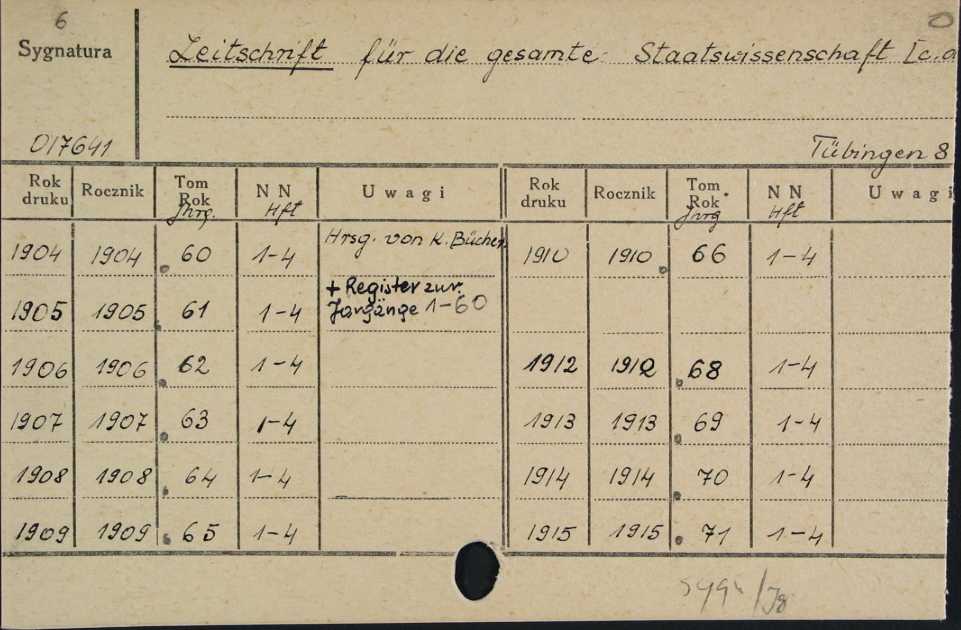 6
Sygnatura
Zeitschrift für die gesamte Staatswissenschaft [c.d
017641
Tübingen 8
Rok druku Rocznik Tom Rok Jhrg. N N Hft Uwagi Rok druku Rocznik Tom Rok Jhrg N N Hft Uwagi
1904 1904 60 1-4 Hrsg. von K. Bücher 1910 1910 66 1-4
1905 1905 61 1-4 + Register zur. Jargänge 1-60
1906 1906 62 1-4 1912 1912 68 1-4
1907 1907 63 1-4 1913 1913 69 1-4
1908 1908 64 1-4 1914 1914 70 1-4
1909 1909 65 1-4 1915 1915 71 1-4